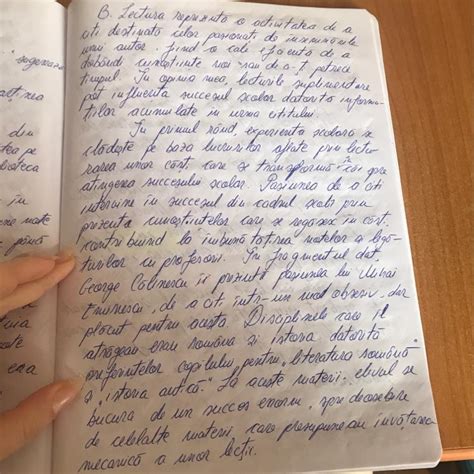 B. Lectura reprezintă o activitatea de a
citi destinată celor pasionați de însemnările
unui autor, fiind o cale eficientă de a
dobândi cunoștințe noi sau de a-ți petrece
timpul. În opinia mea, lecturile suplimentare
pot influența succesul școlar datorită informa-
țiilor acumulate în urma cititului.
În primul rând, experiența școlară se
clădește pe baza lucrurilor aflate prin lectu-
rarea unor cărți, care se transformă în căi spre
atingerea succesului școlar. Pasiunea de a citi
intervine în succesul din cadrul școlii prin
prezența cunoștințelor care se regăsesc în cărți,
contribuind la îmbunătățirea notelor a legă-
turilor cu profesorii. În fragmentul dat,
George Călinescu îi prezintă pasiunea lui Mihai
Eminescu, de a citi într-un mod obsesiv, dar
plăcut pentru acesta. Disciplinele care îl
atrăgeau erau româna și istoria datorită
preferințelor copilului pentru „literatura română”
și „istoria antică”. La aceste materii, elevul se
bucura de un succes enorm, spre deosebire
de celelalte materii, care presupuneau învățarea
mecanică a unor lecții.
din
teca
în
mate
până
era